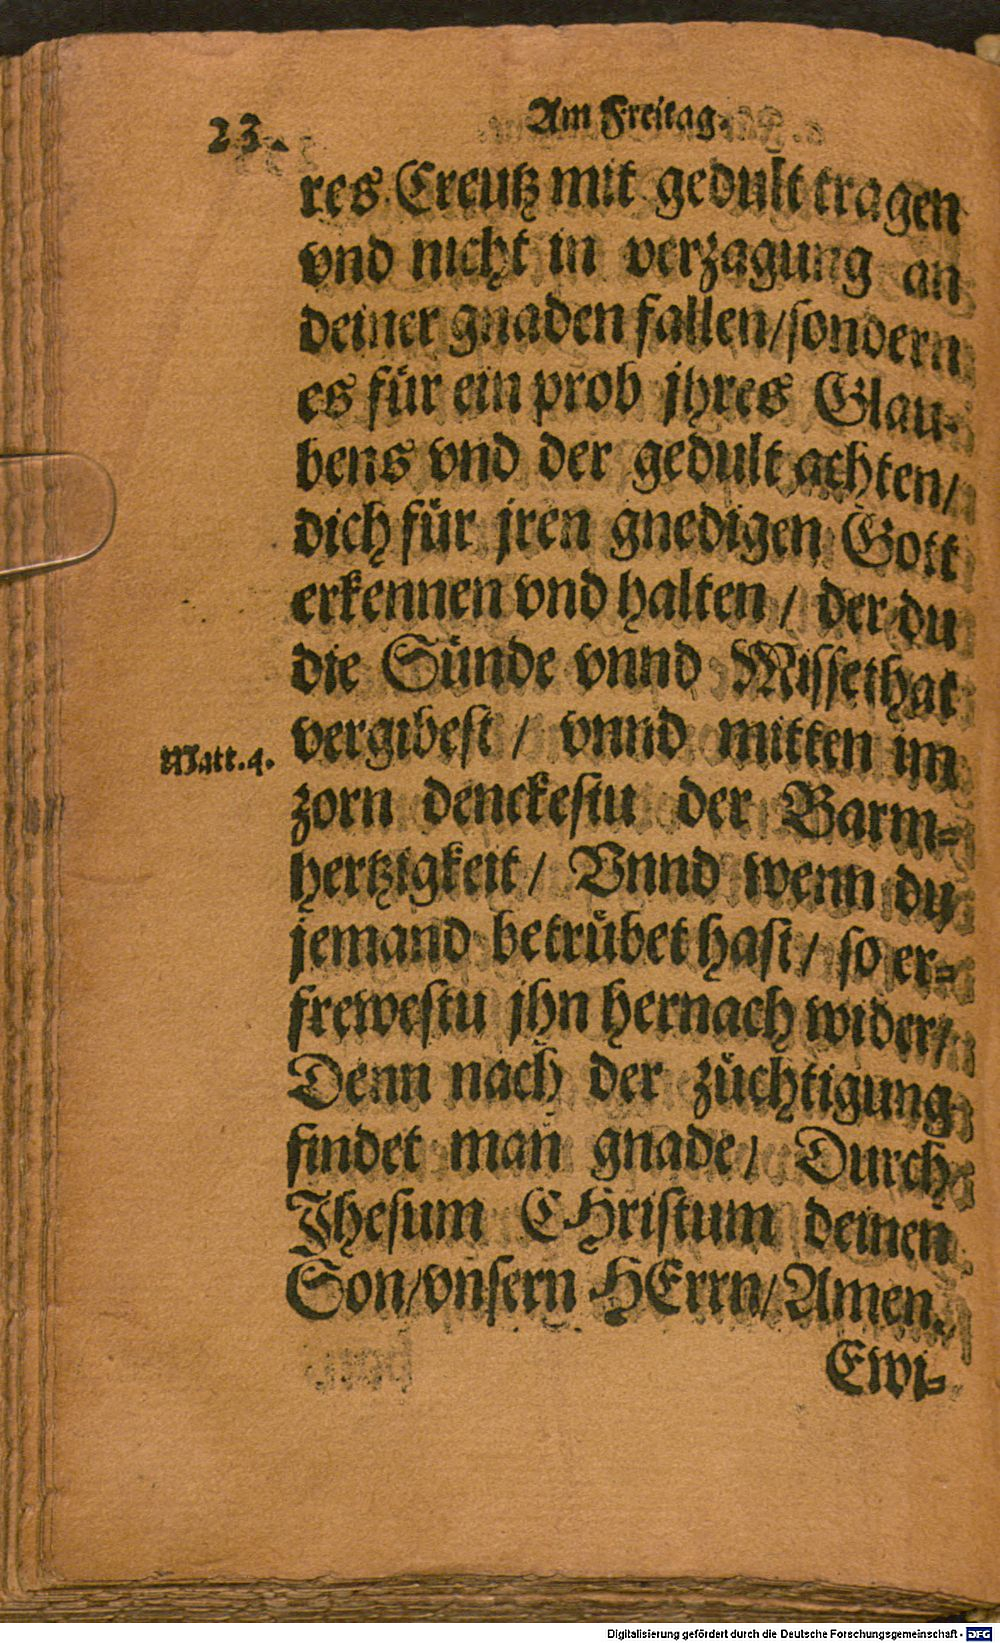 23.
Am Freitag.
res Creutz mit gedult tragen
vnd nicht in verzagung an
deiner gnaden fallen/sondern
es für ein prob jhres Glau-
bens vnd der gedult achten/
dich für jren gnedigen Gott
erkennen vnd halten / der du
die Sünde vnnd Missethat
vergibest / vnnd mitten im
Matt.4.
zorn denckestu der Barm-
hertzigkeit / Vnnd wenn du
jemand betrübet hast / so er-
frewestu jhn hernach wider/
Denn nach der züchtigung
findet man gnade / Durch
Jhesum CHristum deinen
Son/vnsern HErrn/Amen.
Ewi-
Digitalisierung gefördert durch die Deutsche Forschungsgemeinschaft - DFG